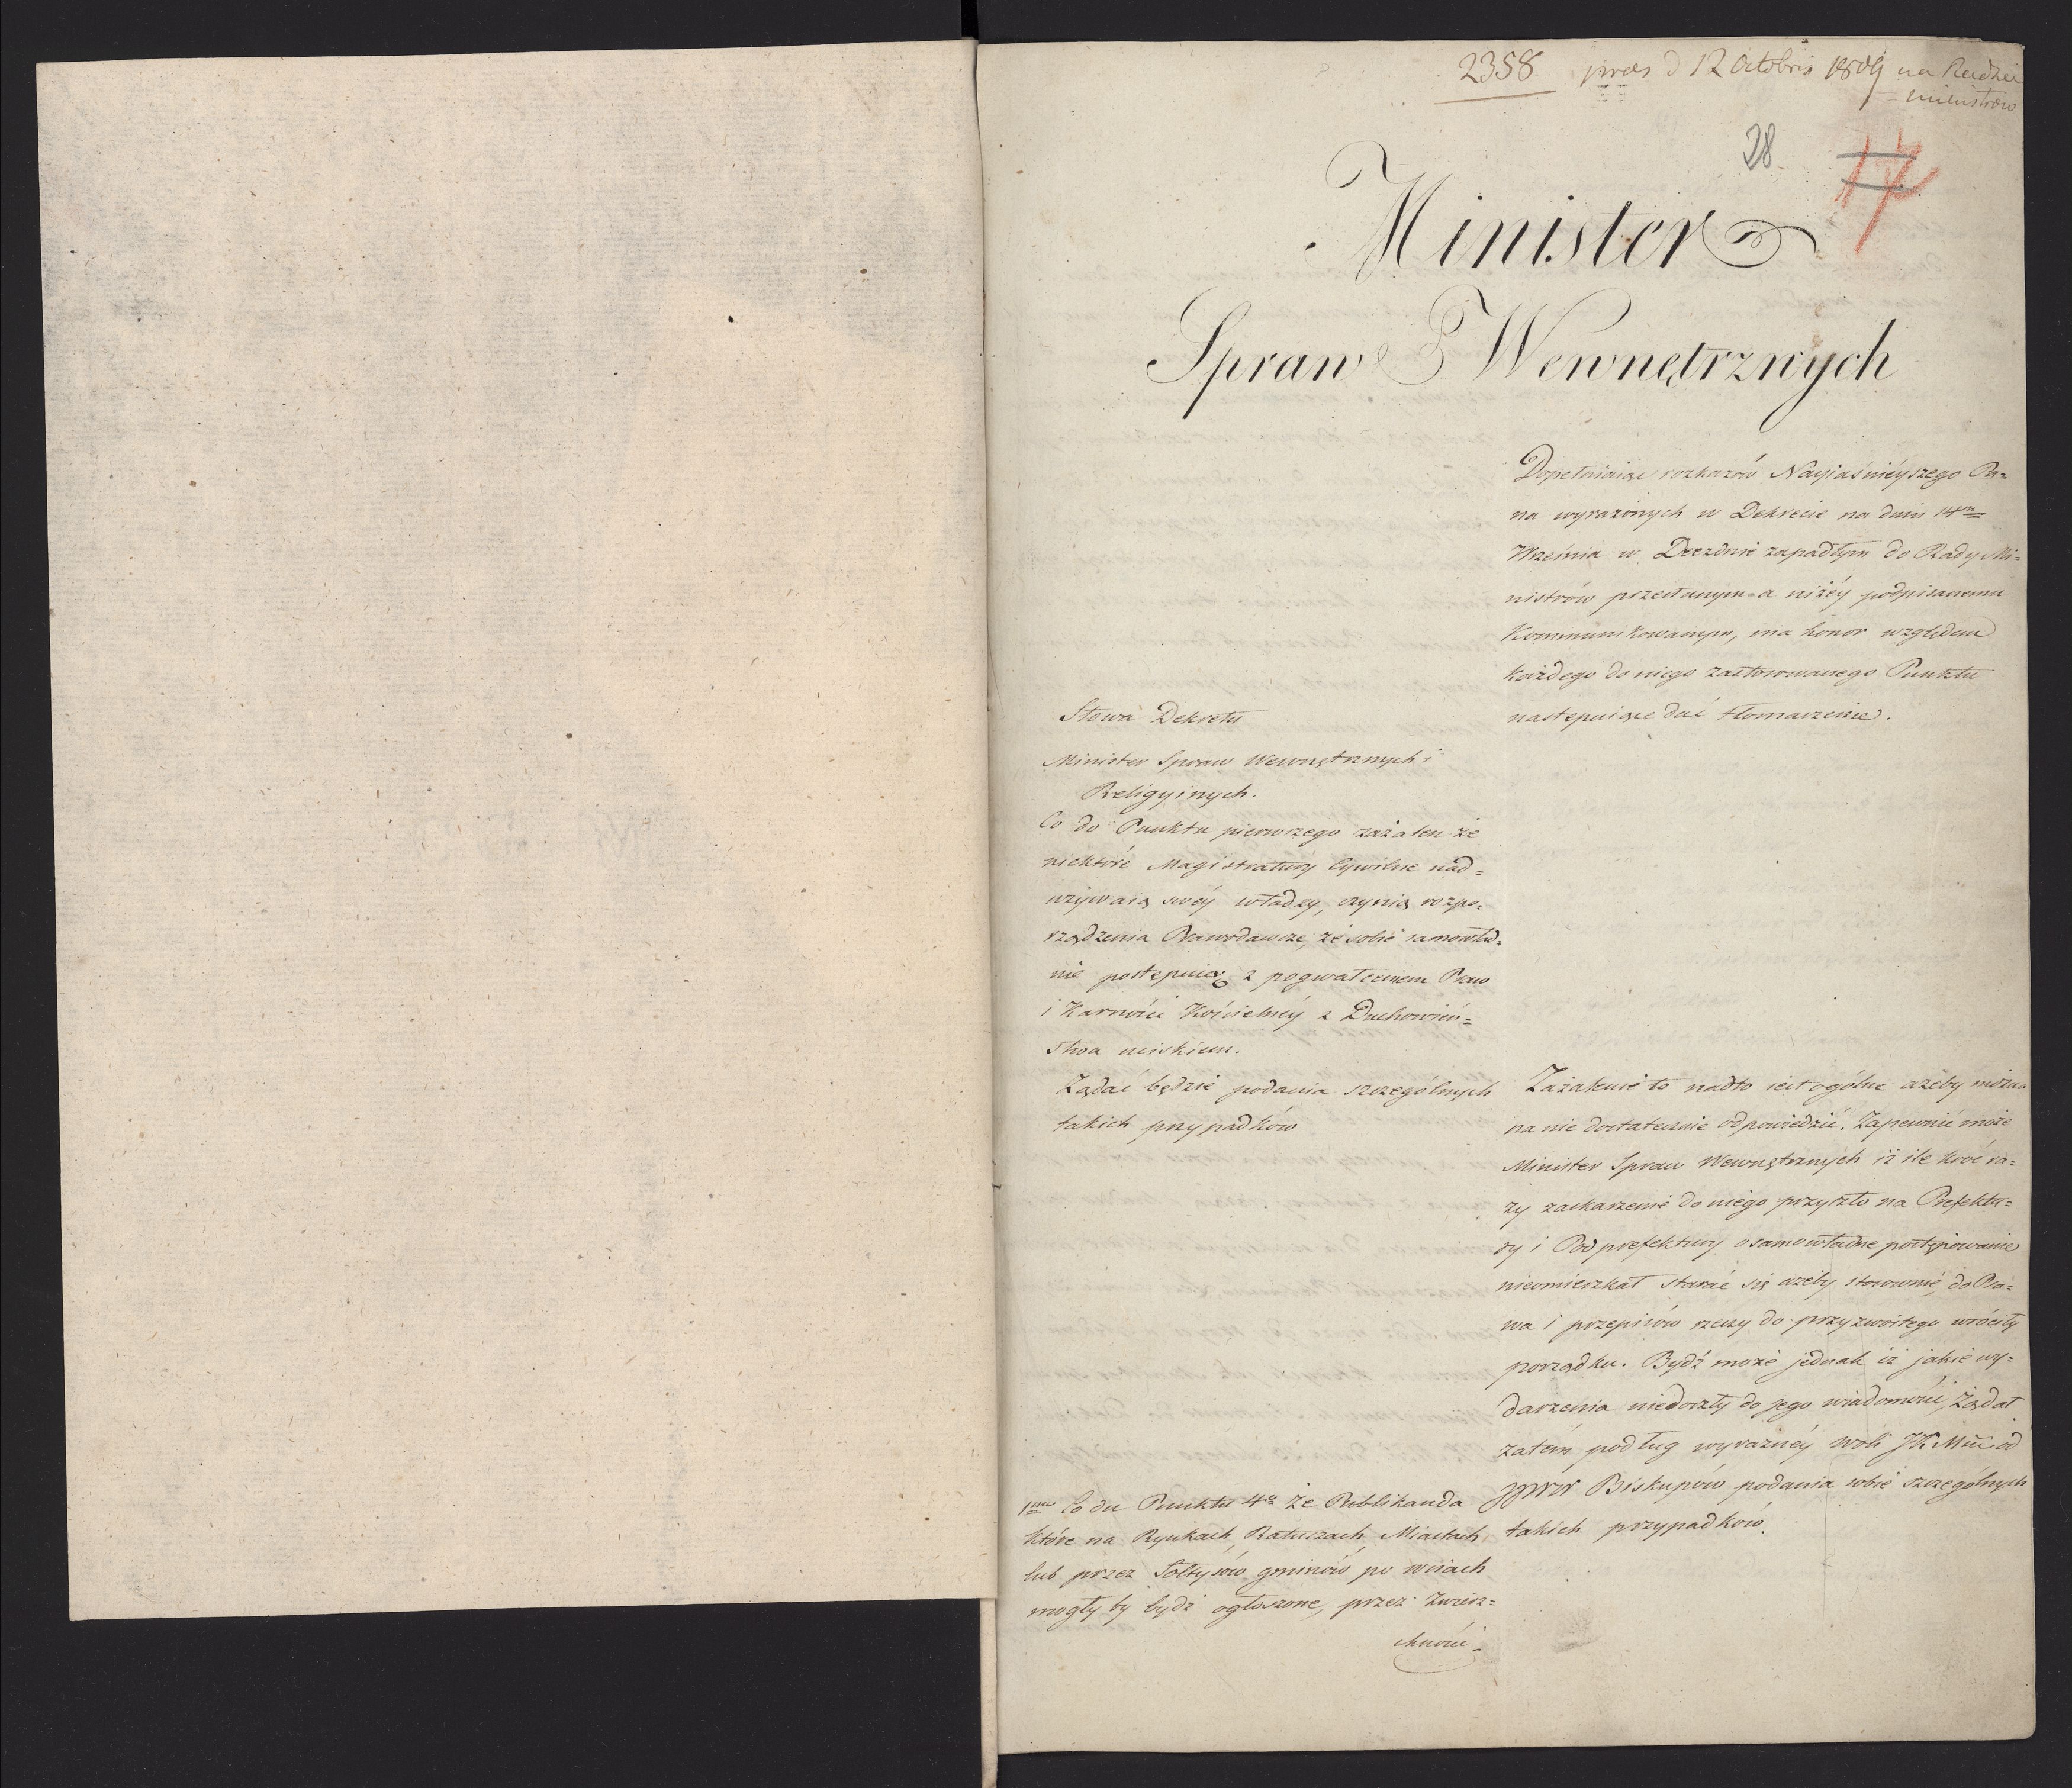 2358 præs d 12 Octobris 1809 na Radzie
ministrow
28
17
Minister
Spraw Wewnętrznych
Dopełniaiąc rozkazów Nayiaśnieyszego Pa=
na wyrażonych w Dekrecie na dniu 14m
Września w Dreznie zapadłym do Rady Mi=
nistrów przesłanym a niżéy podpisanemu
Kommunikowanym, ma honor względem
każdego do niego zastosowanego Punktu
następuiące dać tłomaczenie.
Słowa Dekretu
Minister Spraw Wewnętrznych i
Religyinych.
Co do Punktu pierwszego zażaleń że
niektóre Magistratury Cywilne nad=
używaią swéy władzy, czynią rozpo=
rządzenia Prawodawcze, że sobie samowład=
nie postępuią z pogwałceniem Praw
i Karności Kościelnéy z Duchowień=
stwa uciskiem.
Żądać będzie podania szczególnych
takich przypadków
Zażalenie to nadto iest ogólne ażeby można
na nie dostatecznie odpowiedzić. Zapewnić może
Minister Spraw Wewnętrznych iż ile kroć ra=
zy zaskarżenie do niego przyszło na Prefektu=
ry i Podprefektury o samowładne postępowanie
nieomieszkał starać się ażeby stosownie do Pra=
wa i przepisów rzeczy do przyzwoitego wróciły
porządku. Bydź może jednak iż jakie wy=
darzenia niedoszły do jego wiadomości, Żądał
zatém podług wyraźnéy woli JK Mći od
JJWW Biskupów podania sobie szczególnych
takich przypadków.
1mo Co do Punktu 4o że Publikanda
które na Rynkach, Ratuszach, Miastach,
lub przez Sołtysów gminów po wsiach
mogły by bydź ogłoszone, przez Zwierz=
chność=